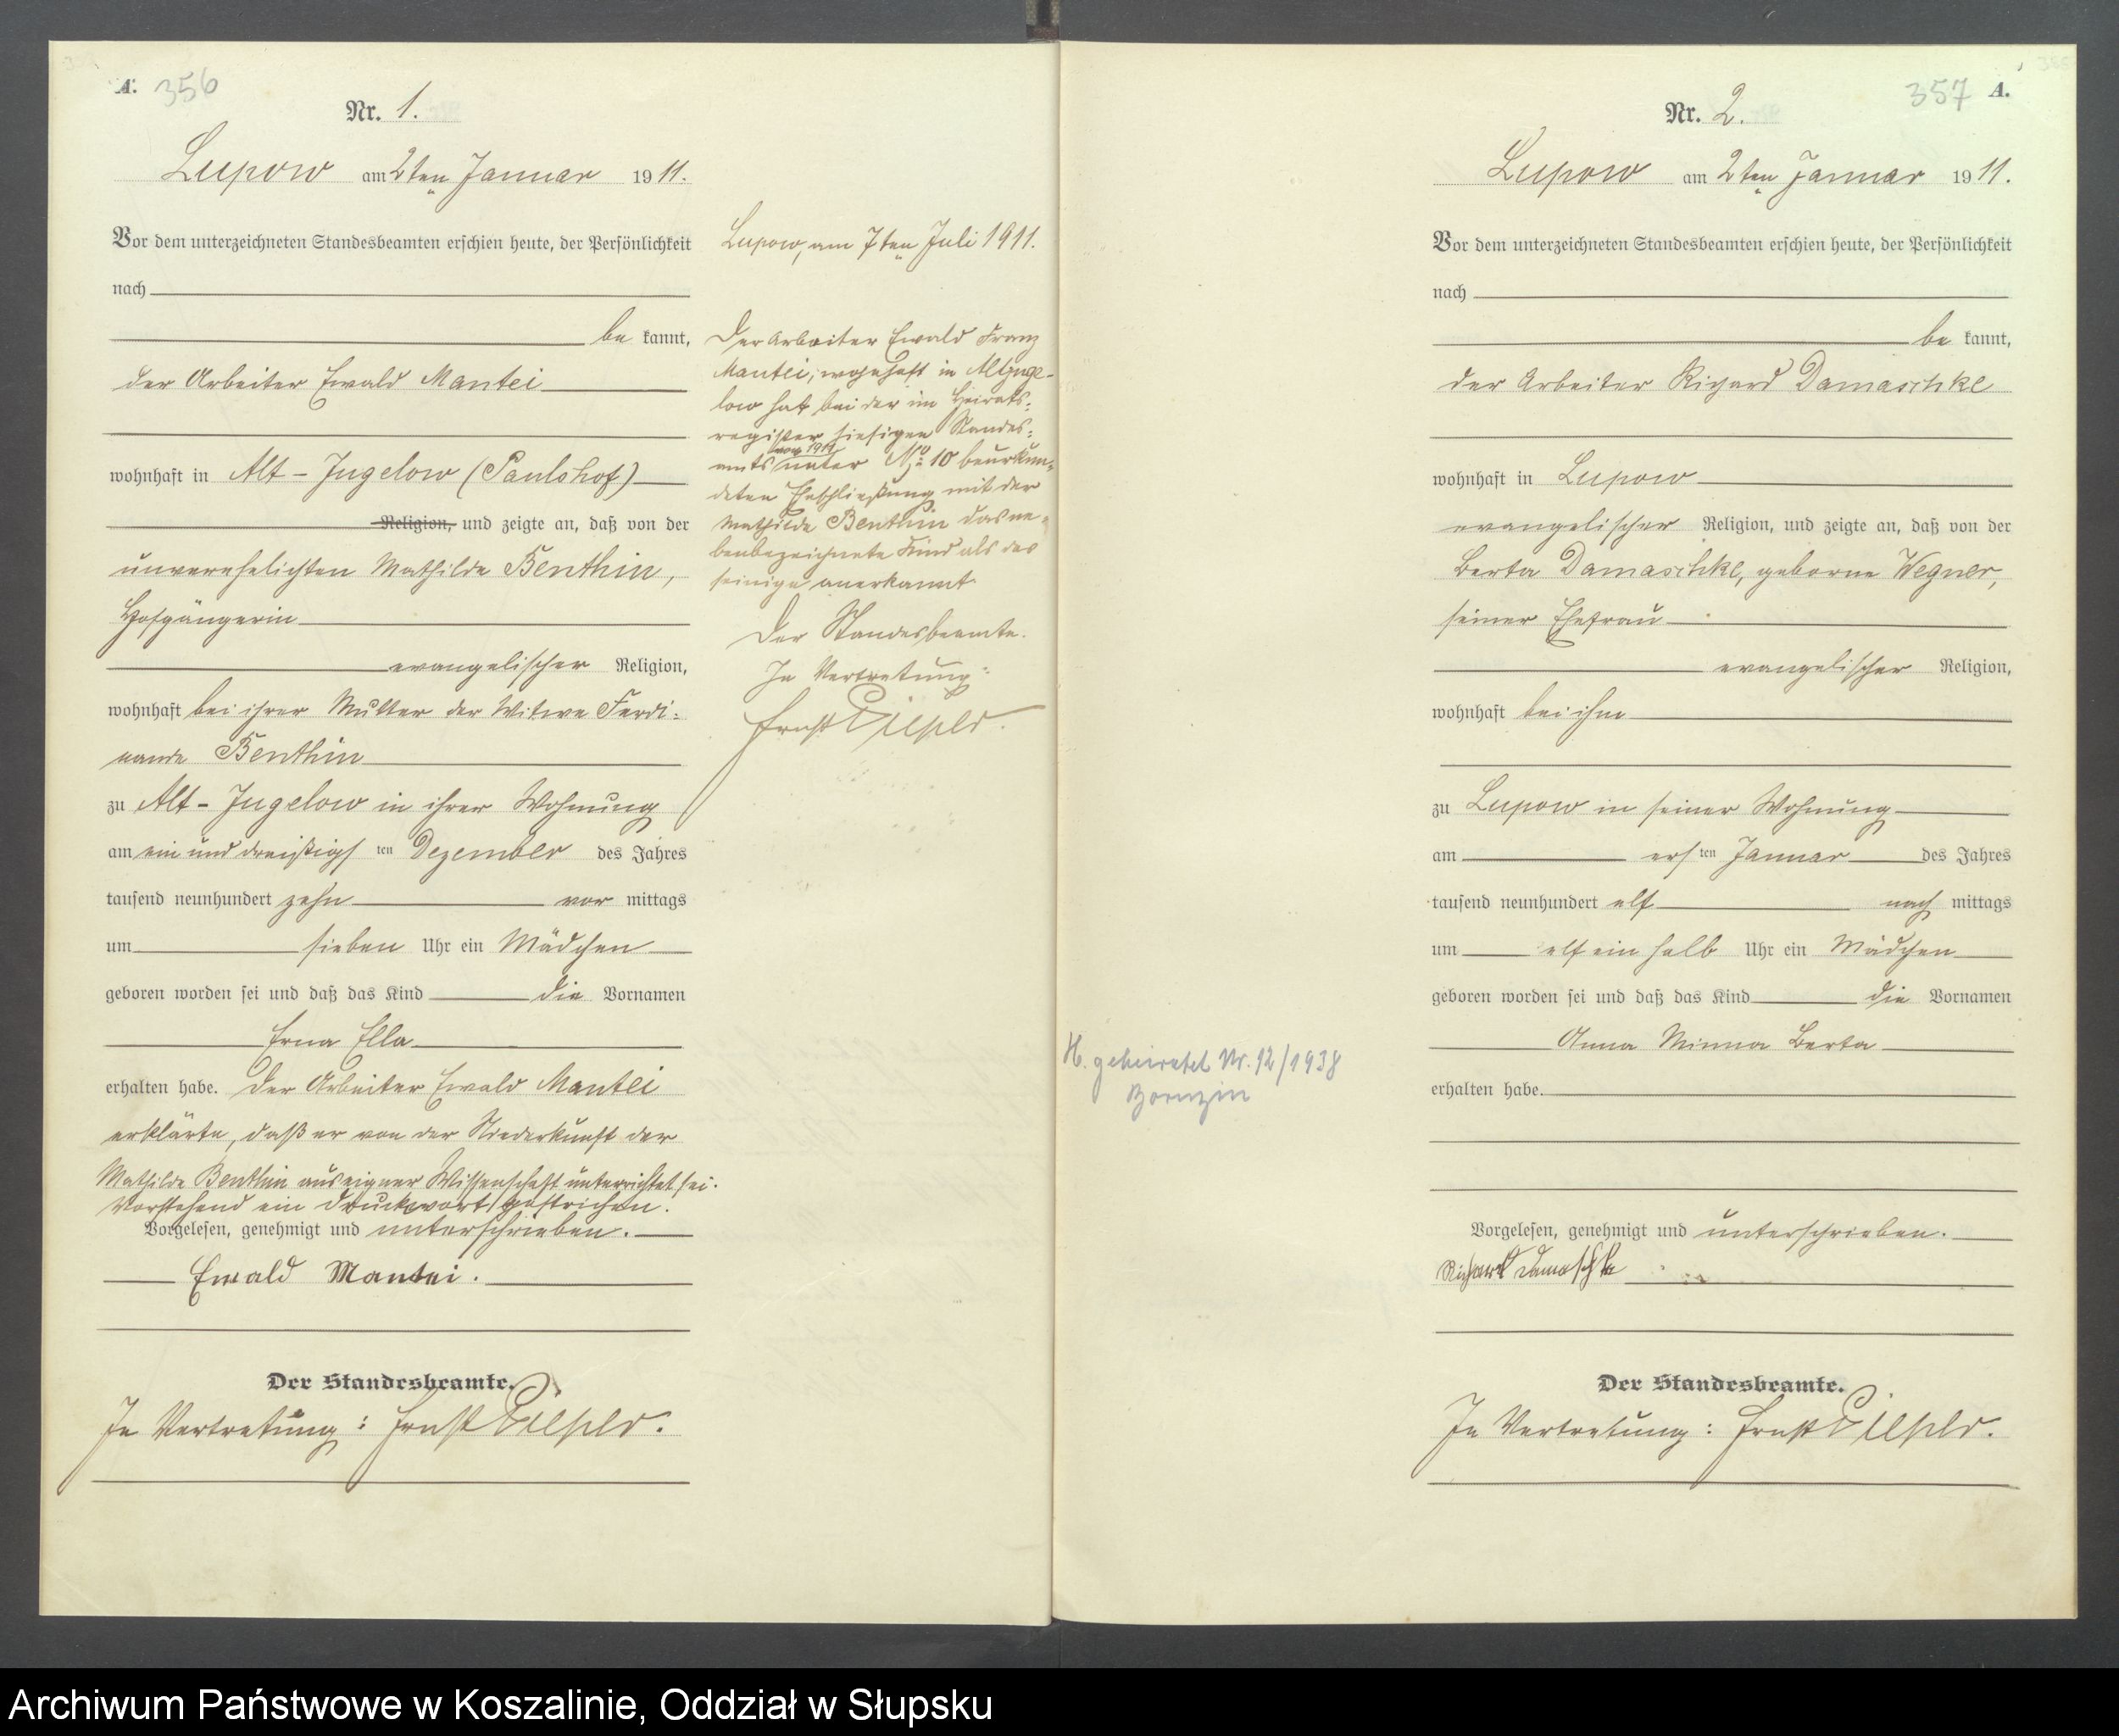 A. 356
Nr. 1.
Lupow am 2ten Januar 1911.
Vor dem unterzeichneten Standesbeamten erschien heute, der Persönlichkeit
nach
be kannt,
der Arbeiter Ewald Mantei
wohnhaft in Alt-Jugelow (Paulshof)
Religion, und zeigte an, daß von der
unverehelichten Mathilde Benthin,
Hofgängerin
evangelischer Religion,
wohnhaft bei ihrer Mutter der Witwe Ferdi-
nande Benthin
zu Alt-Jugelow in ihrer Wohnung
am ein und dreißigsten Dezember des Jahres
tausend neunhundert zehn vor mittags
um sieben Uhr ein Mädchen
geboren worden sei und daß das Kind die Vornamen
Erna Ella
erhalten habe. Der Arbeiter Ewald Mantei
erklärte, daß er von der Niederkunft der
Mathilde Benthin aus eigner Wissenschaft unterrichtet sei.
Vorstehend ein Druckwort gestrichen.
Vorgelesen, genehmigt und unterschrieben.
Ewald Mantei.
Der Standesbeamte.
In Vertretung: Ernst
Lupow, am 7ten Juli 1911.
Der Arbeiter Ewald Franz
Mantei, wohnhaft in Altjuge-
low hat bei der im Heirats-
register hiesigen Standes-
vom 1911
amts unter No 10 beurkun-
deten Eheschließung mit der
Mathilde Benthin das ne-
benbezeichnete Kind als das
seinige anerkannt
Der Standesbeamte.
In Vertretung:
Ernst
357 A.
Nr. 2.
Lupow am 2ten Januar 1911.
Vor dem unterzeichneten Standesbeamten erschien heute, der Persönlichkeit
nach
be kannt,
der Arbeiter Richard Damaschke
wohnhaft in Lupow
evangelischer Religion, und zeigte an, daß von der
Berta Damaschke, geborne Wegner,
seiner Ehefrau
evangelischer Religion,
wohnhaft bei ihm
zu Lupow in seiner Wohnung
am ersten Januar des Jahres
tausend neunhundert elf nach mittags
um elf ein halb Uhr ein Mädchen
geboren worden sei und daß das Kind die Vornamen
Anna Minna Berta
erhalten habe.
Vorgelesen, genehmigt und unterschrieben.
Richard Damaschke
Der Standesbeamte.
In Vertretung: Ernst
H. geheiratet Nr. 12/1938
Bornzin
Archiwum Państwowe w Koszalinie, Oddział w Słupsku